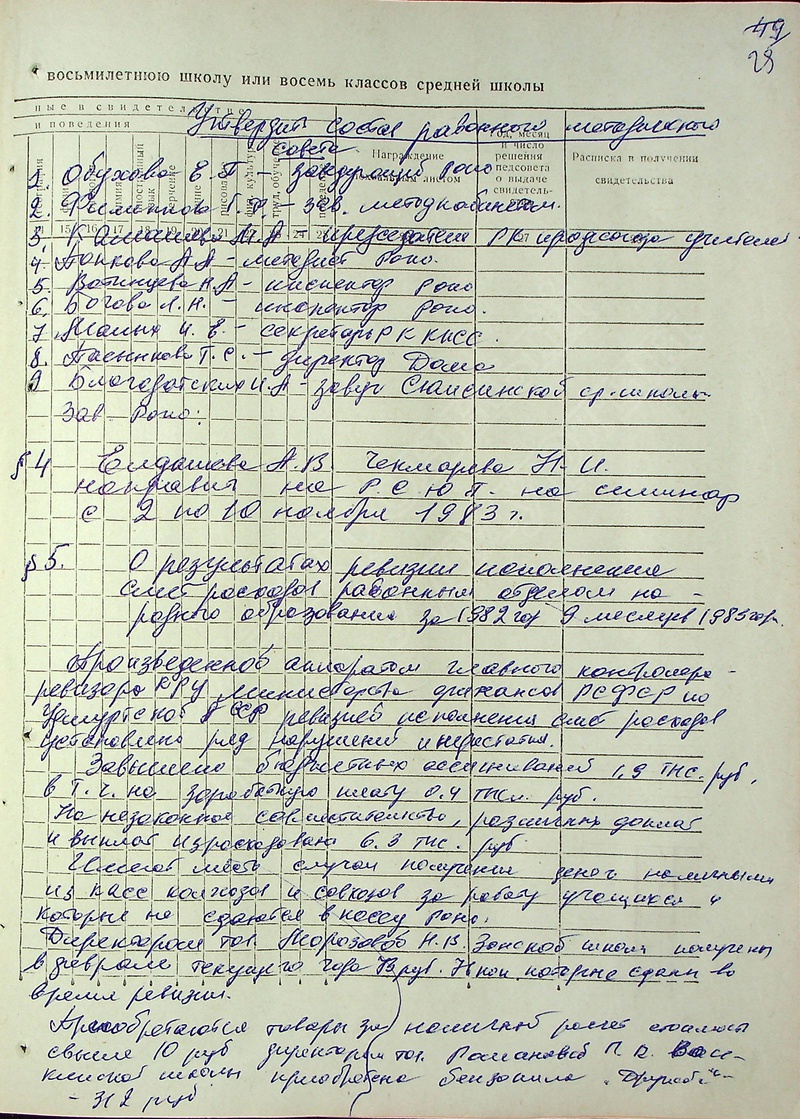 49
29
восьмилетнюю школу или восемь классов средней школы
ные в свидетельстве
и поведения
Утвердить состав районного методического
совета
Награждение
похвальным листом
Год, месяц
и число
решения
педсовета
о выдаче
свидетель-
Расписка в получении
свидетельства
15 16 17 18 19 27
1. Обухова Е.П – заведующий Роно
2. Филиппова Г.Ф – зав. методкабинетом.
3, Камашева М.А – председатель РК профсоюза учителей
4. Попкова А.А – методист Роно.
5. Вотинцева Н.А – инспектор Роно
6. Богова Л.Н. – инспектор Роно.
7 Малых И. Е. – секретарь РК КПСС.
8. Пасынкова Г.С. – директор Дома
9 Благодатских И.А – завуч Сюмсинской ср. школы.
Зав Роно:
§ 4 Елдашева А.В Чекмарева Н. И.
направить на Р.С.Ю.П. на семинар
с 2 по 10 ноября 1983 г.
§ 5. О результатах ревизии исполнения
смет расходов районным отделом на-
родного образования за 1982 год 9 месяцев 1983 года.
Произведенной аппаратом главного контролера-
ревизора КРУ Министерства финансов РСФСР по
Удмуртской АССР ревизией исполнения смет расходов
установлено ряд нарушений и недостатки.
Завышено бюджетных ассигнований 1,9 тыс. руб,
в т. ч. на заработную плату 0,4 тыс. руб.
На незаконное совместительство, различных доплат
и выплат израсходовано 6.3 тыс. руб
Имеют место случаи получения денег наличными
из касс колхозов и совхозов за работу учащихся и
которые не сдаются в кассу Роно.
Директором тов. Морозовой Н.В. Зонской школы получены
в феврале текущего года руб. коп которые сданы во
время ревизии.
Приобретаются товары за наличный расчет стоимостью
свыше 10 руб директором тов. Романовой П. В.
школы приобретена бензопила „Дружба"–
– 312 руб